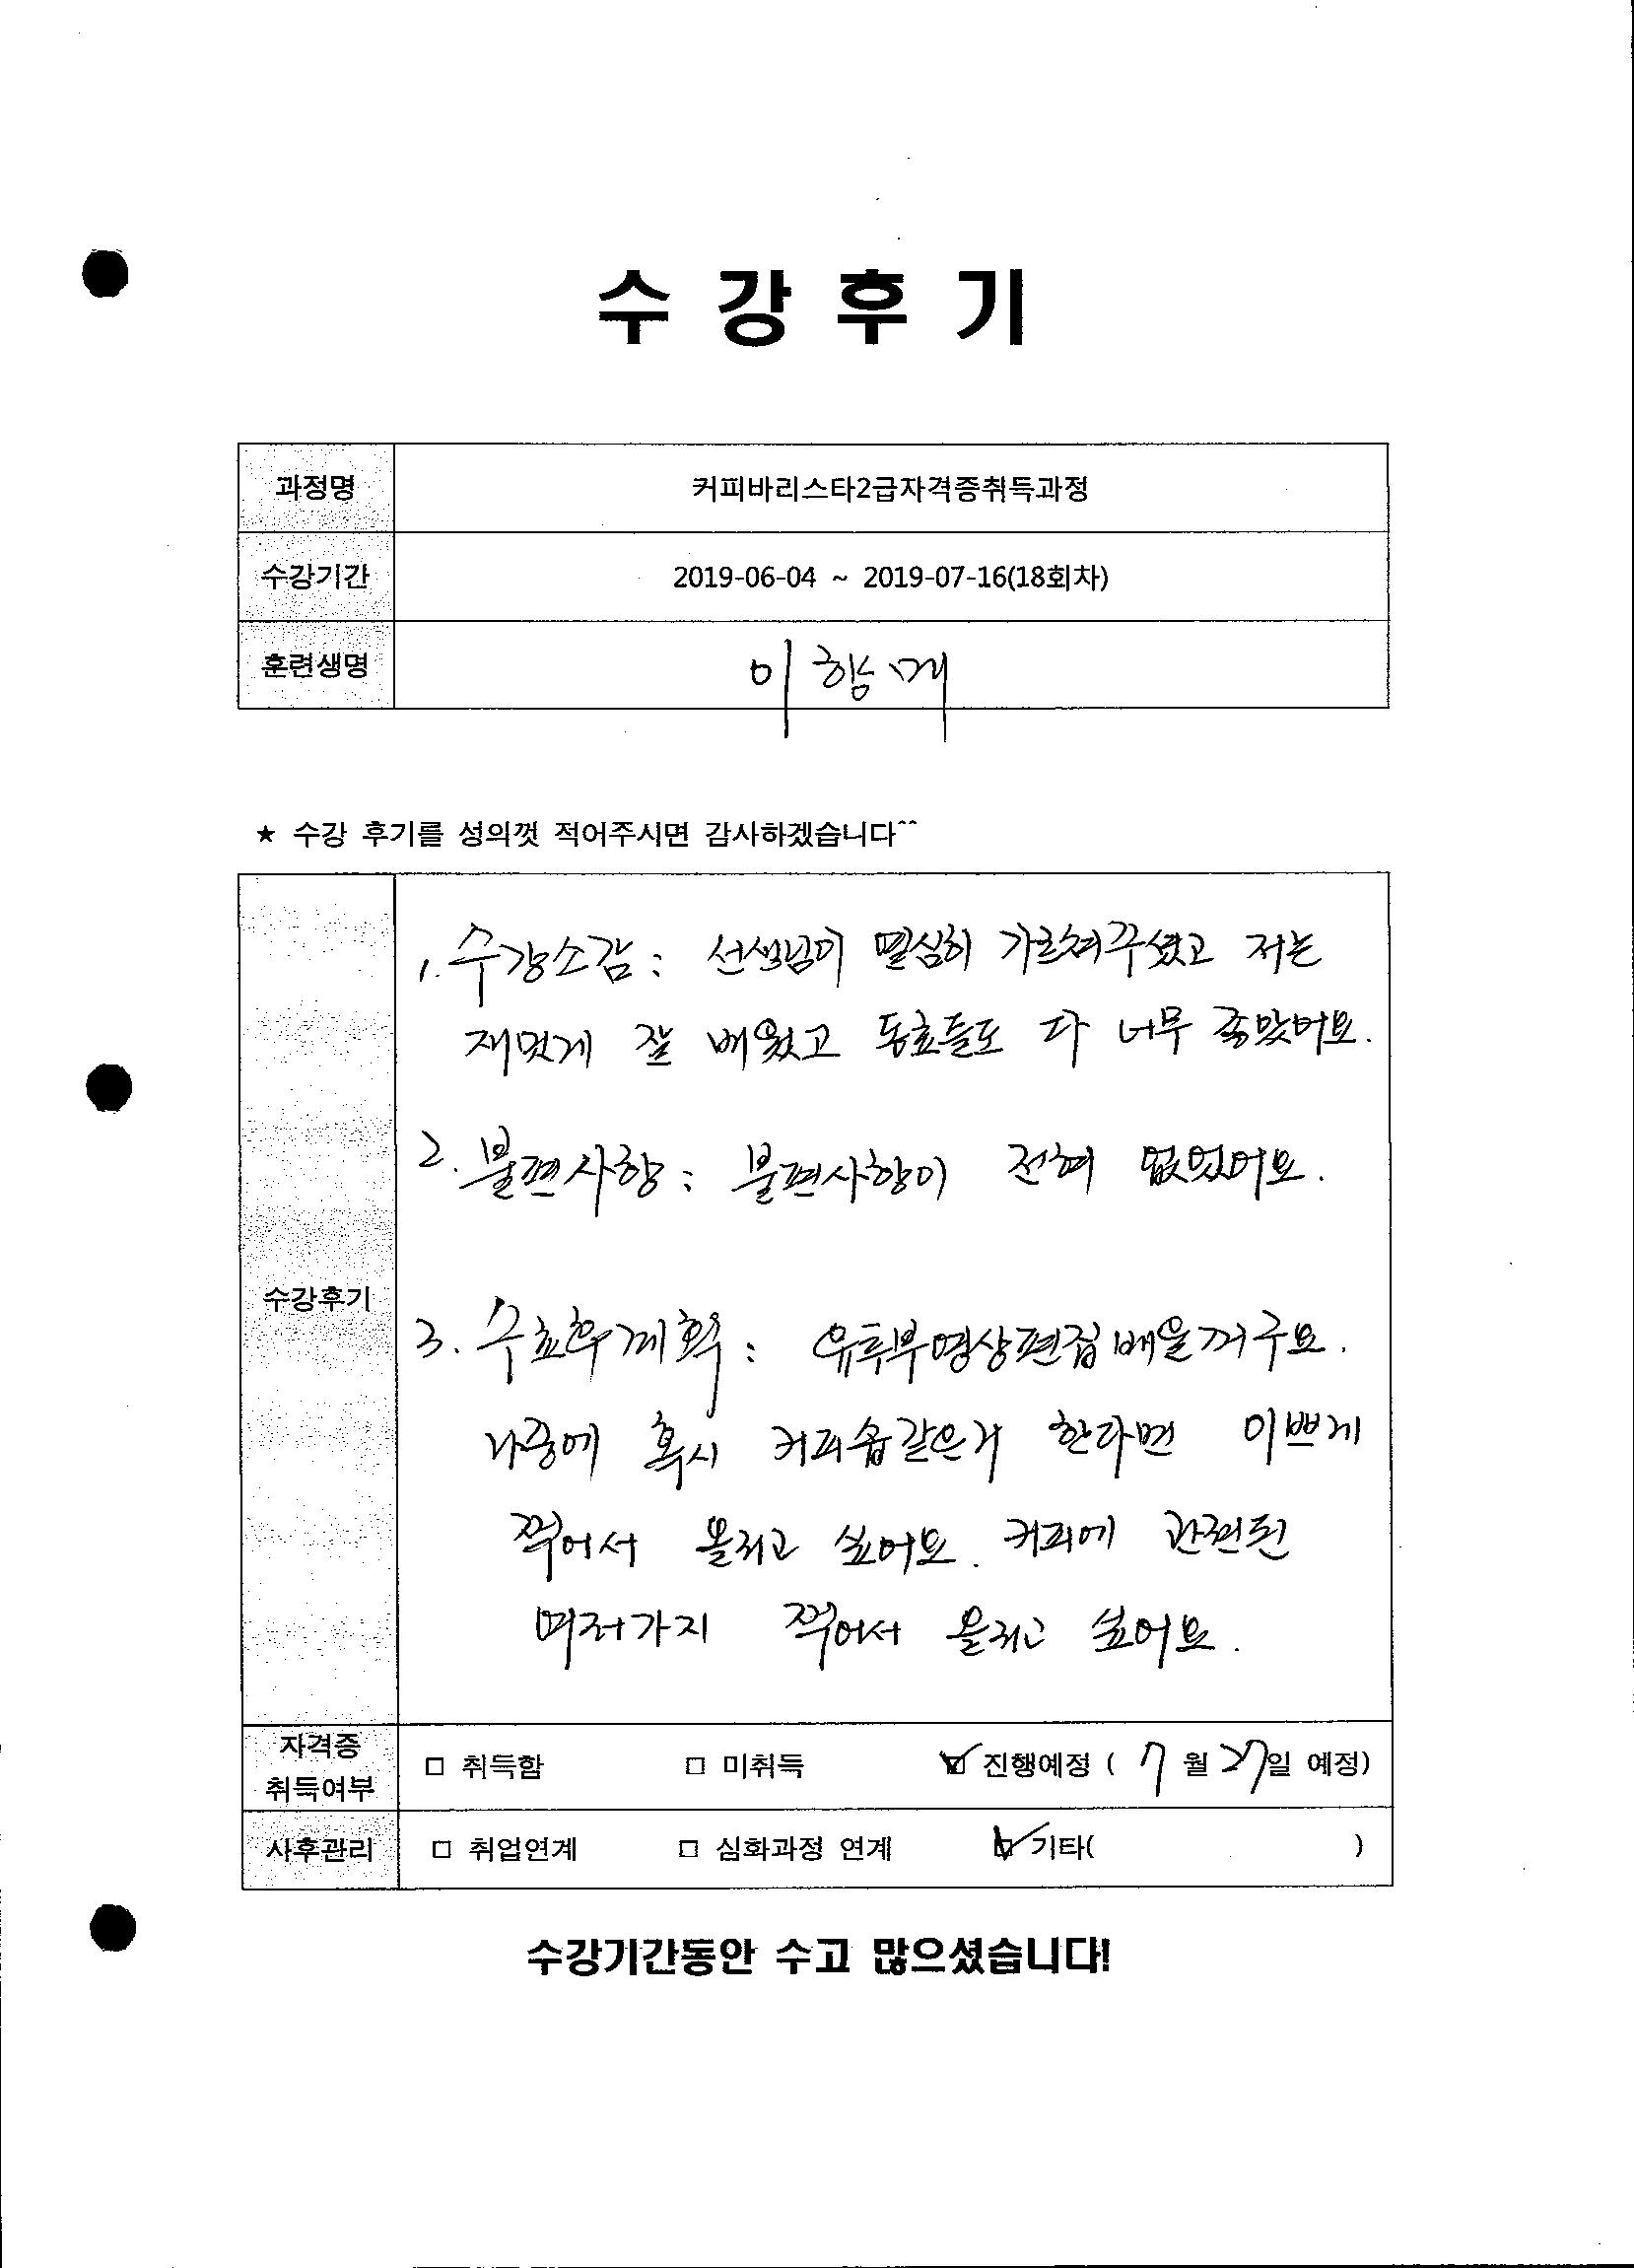 수 강 후 기
과정명 커피바리스타2급자격증취득과정
수강기간 2019-06-04 ~ 2019-07-16(18회차)
훈련생명 이
★ 수강 후기를 성의껏 적어주시면 감사하겠습니다^^
1. 수강소감 : 선생님이 열심히 가르쳐주셨고 저는
재밋게 잘 배웠고 동료들도 다 너무 좋았어요.
2. 불편사항 : 불편사항이 전혀 없었어요.
수강후기
3. 수료후계획 : 유튜부영상편집배울꺼구요.
나중에 혹시 커피숍같은거 한다면 이쁘게
찍어서 올리고 싶어요. 커피에 관련된
여러가지 찍어서 올리고 싶어요.
자격증
취득여부
□ 취득함 □ 미취득 ☑ 진행예정 ( 7 월 27일 예정)
사후관리 □ 취업연계 □ 심화과정 연계 ☑ 기타( )
수강기간동안 수고 많으셨습니다!